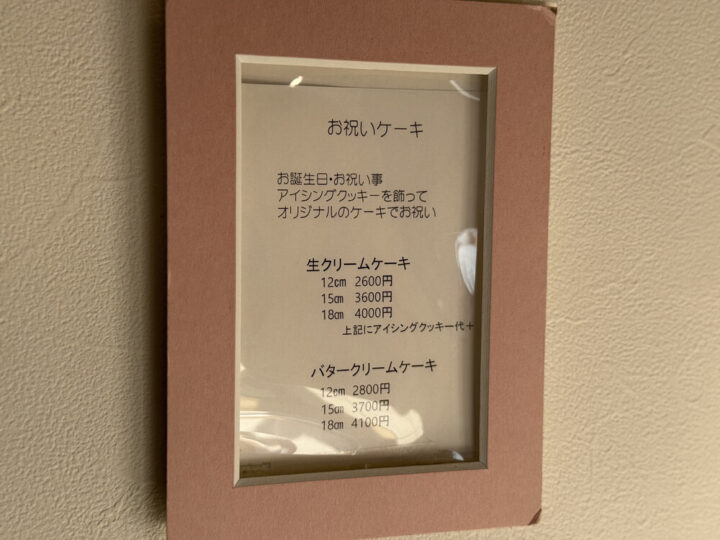 お祝いケーキ
お誕生日・お祝い事
アイシングクッキーを飾って
オリジナルのケーキでお祝い
生クリームケーキ
12㎝ 2600円
15㎝ 3600円
18㎝ 4000円
上記にアイシングクッキー代＋
バタークリームケーキ
12㎝ 2800円
15㎝ 3700円
18㎝ 4100円